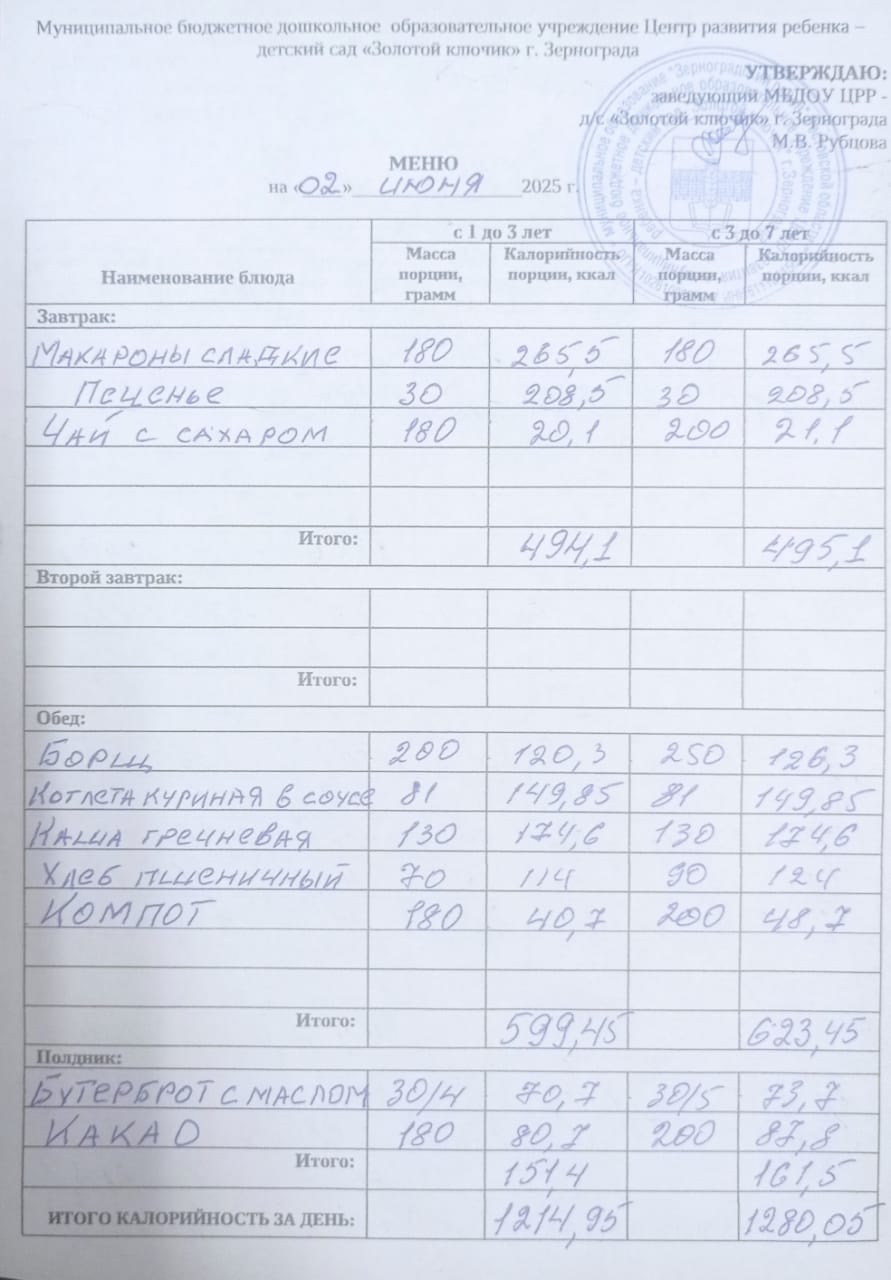 Муниципальное бюджетное дошкольное образовательное учреждение Центр развития ребенка –
детский сад «Золотой ключик» г. Зернограда
УТВЕРЖДАЮ:
заведующий МБДОУ ЦРР -
д/с «Золотой ключик» г. Зернограда
М.В. Рубцова
МЕНЮ
на «02» июня 2025 г.
Наименование блюда
с 1 до 3 лет с 3 до 7 лет
Масса порции, грамм Калорийность порции, ккал Масса порции, грамм Калорийность порции, ккал
Завтрак:
Макароны сладкие 180 265,5 180 265,5
Печенье 30 208,5 30 208,5
Чай с сахаром 180 20,1 200 21,1
Итого: 494,1 495,1
Второй завтрак:
Итого:
Обед:
Борщ 200 120,3 250 126,3
Котлета куриная в соусе 81 149,85 81 149,85
Каша гречневая 130 174,6 130 174,6
Хлеб пшеничный 70 114 90 124
Компот 180 40,7 200 48,7
Итого: 599,45 623,45
Полдник:
Бутерброт с маслом 30/4 70,7 30/5 73,7
Какао 180 80,7 200 87,8
Итого: 151,4 161,5
ИТОГО КАЛОРИЙНОСТЬ ЗА ДЕНЬ: 1214,95 1280,05